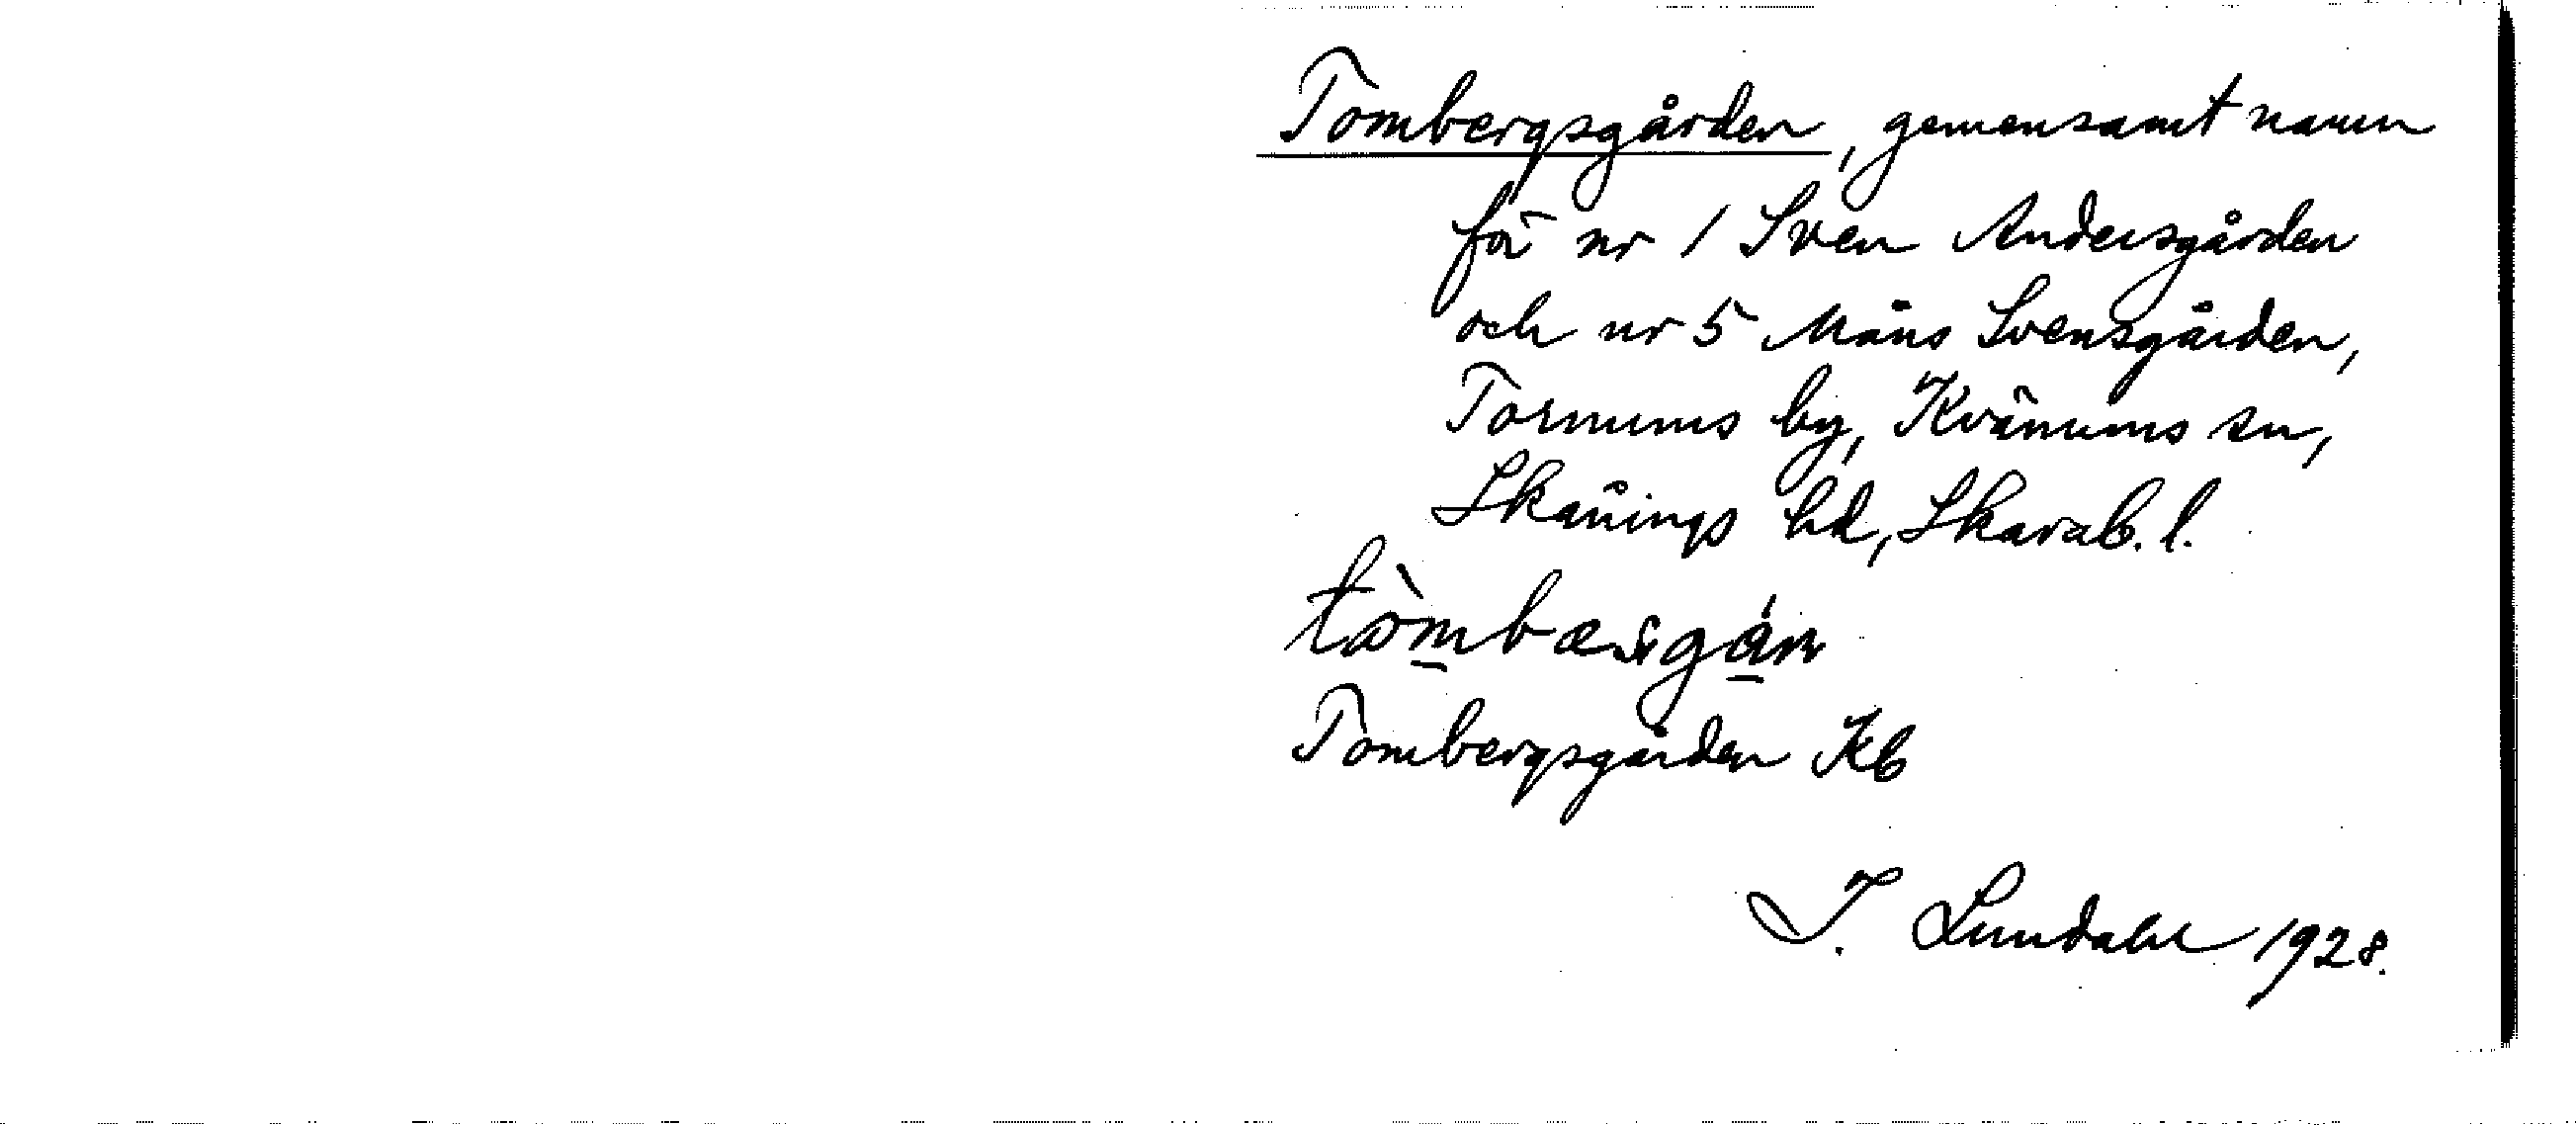 Tombergsgården, gemensamt namn
för nr 1 Sven Andersgården
och nr 5 Måns Svensgården,
Tormums by, Kvänums sn,
Skånings hd, Skarab. l.
Tombergsgården Kb
I. Lundahl 1928.